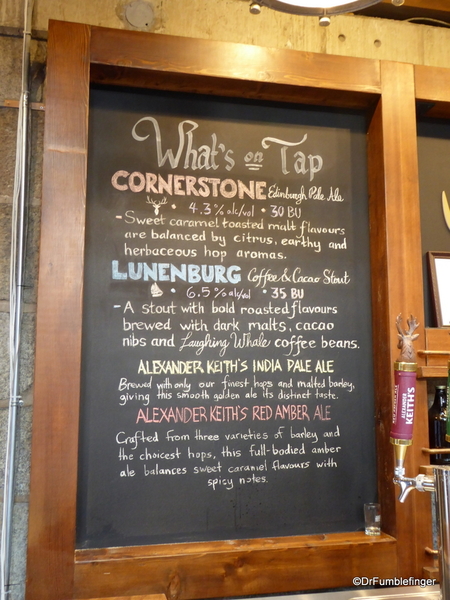 What's on Tap
CORNERSTONE Edinburgh Pale Ale
• 4.3% alc/vol • 30 BU
- Sweet caramel toasted malt flavours
are balanced by citrus, earthy and
herbaceous hop aromas.
LUNENBURG Coffee & Cacao Stout
• 6.5% alc/vol • 35 BU
- A stout with bold roasted flavours
brewed with dark malts, cacao
nibs and Laughing Whale coffee beans.
ALEXANDER KEITH'S INDIA PALE ALE
Brewed with only our finest hops and malted barley,
giving this smooth golden ale its distinct taste.
ALEXANDER KEITH'S RED AMBER ALE
Crafted from three varieties of barley and
the choicest hops, this full-bodied amber
ale balances sweet caramel flavours with
spicy notes.
ALEXANDER
KEITH'S
©DrFumblefinger